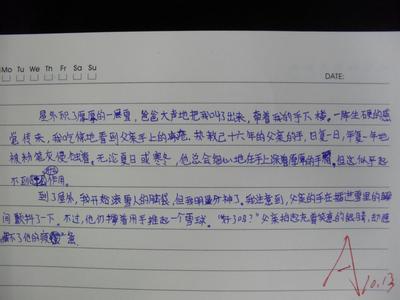 Mo Tu We Th Fr Sa Su
DATE:
屋外积了厚厚的一层雪,爸爸大声地把我叫出来,牵着我的手下楼。一阵生硬的感
觉传来,我吃惊地看到父亲手上的
十六年的父亲的手,日复一日,年复一年地
被粉笔灰侵蚀着。无论夏日或寒冬,他总会细心地在手上涂着厚厚的手霜。但这似乎起
不到作用。
到了屋外,我开始滚雪人的脑袋,但我明显分神了。我注意到,父亲的手在插进雪里的瞬
间颤抖了一下。不过,他仍撑着用手堆起一个雪球。"好了吗?"父亲抬起充着笑意的眼睛,却遮
不了他的疲惫。
A
10.13